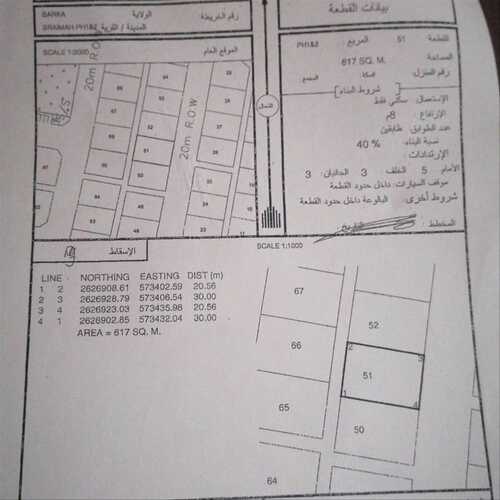 بيانات القطعة
القطعة : 51 المربع : PH1&2
المساحة : 617 SQ. M.
رقم المنزل : السكة : المجمع :
شروط البناء
الإستعمال: سكني فقط
الإرتفاع : 8م
عدد الطوابق : طابقين
نسبة البناء: % 40
الإرتدادات:
الأمام : 5 الخلف : 3 الجانبان : 3
موقف السيارات: داخل حدود القطعة
شروط أخرى: البالوعة داخل حدود القطعة
المخطط :
التاريخ:
BARKA
الولاية
رقم الخريطة
المدينة / القرية
SCALE 1:3000
الموقع العام
20m R.O.W
20m R.O.W
الشمال
الإسقاط
SCALE 1:1000
LINE NORTHING EASTING DIST (m)
1 2 2626908.61 573402.59 20.56
2 3 2626928.79 573406.54 30.00
3 4 2626923.03 573435.98 20.56
4 1 2626902.85 573432.04 30.00
AREA = 617 SQ. M.
67
66
65
64
52
51
50
1
2
3
4